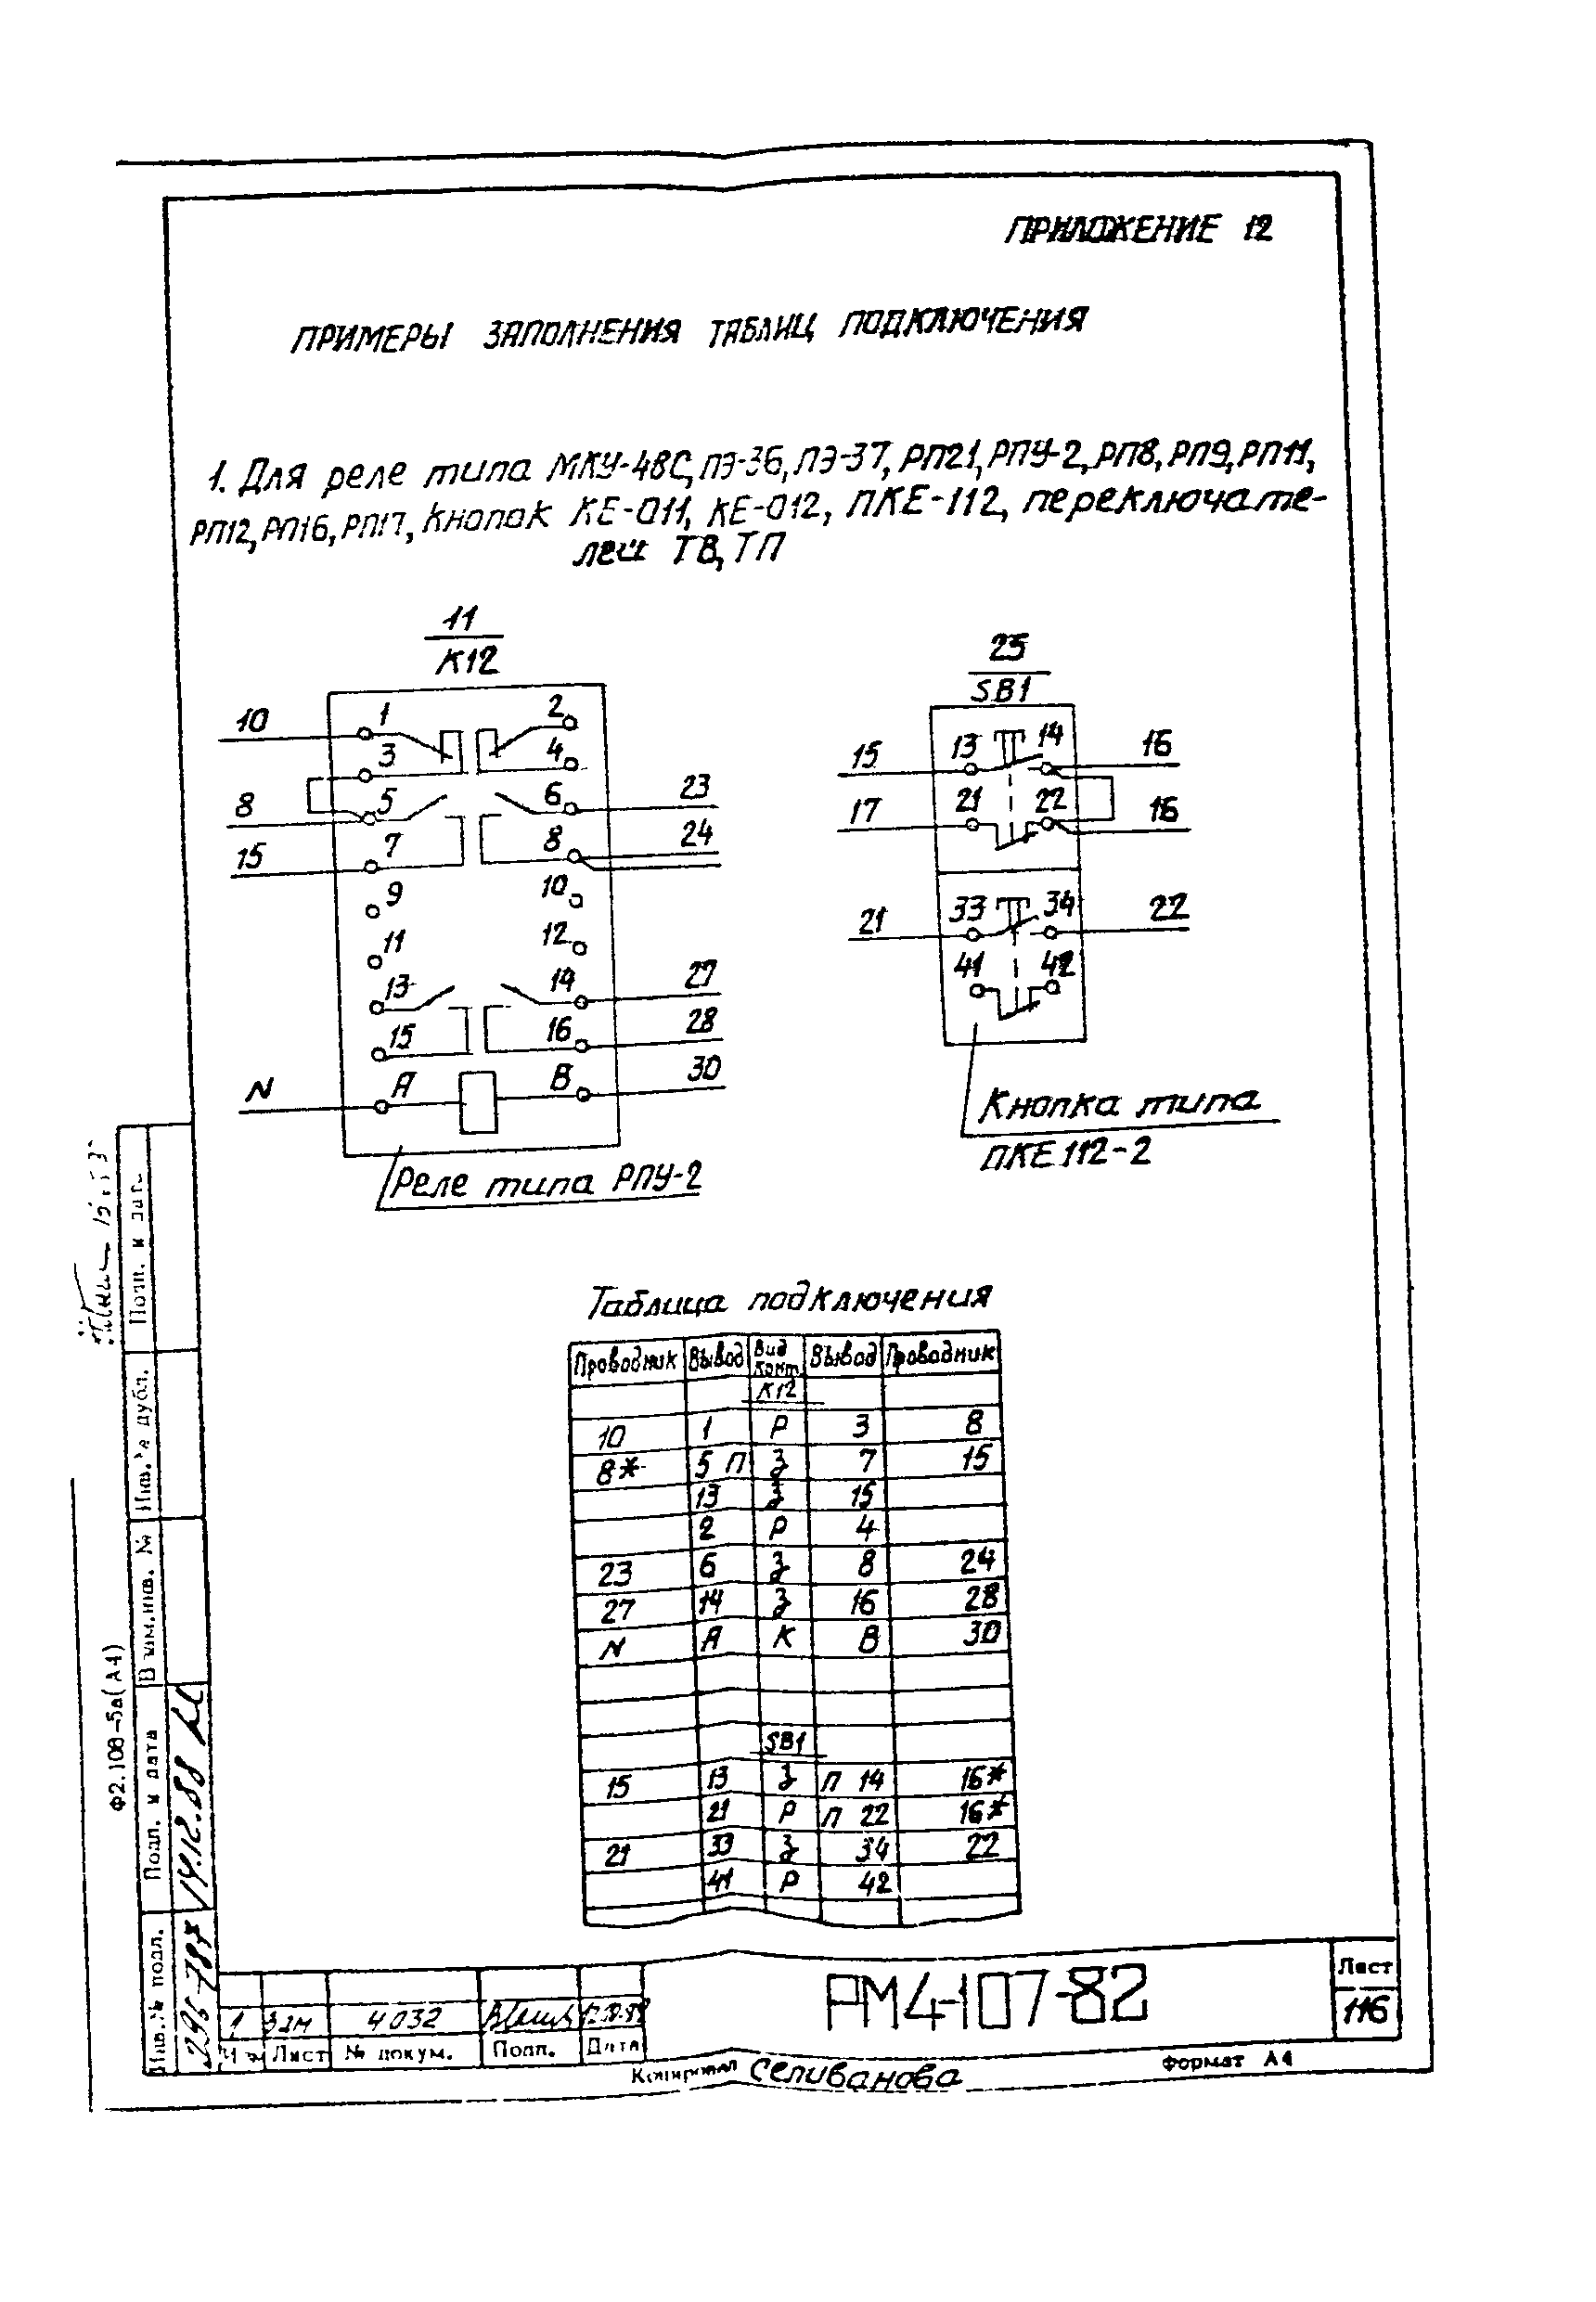 ПРИЛОЖЕНИЕ 12
ПРИМЕРЫ ЗАПОЛНЕНИЯ ТАБЛИЦ ПОДКЛЮЧЕНИЯ
1. Для реле типа МКУ-48С, ПЭ-36, ПЭ-37, РП21, РПУ-2, РП8, РП9, РП11,
РП12, РП16, РП17, кнопок КЕ-011, КЕ-012, ПКЕ-112, переключате-
лей ТВ, ТП
11
К12
10 1 2
3 4
8 5 6 23
15 7 8 24
9 10
11 12
13 14 27
15 16 28
N А В 30
Реле типа РПУ-2
25
SB1
15 13 14 16
17 21 22 16
21 33 34 22
41 42
Кнопка типа
ПКЕ 112-2
Таблица подключения
Проводник Вывод Вид конт. Вывод Проводник
К12
10 1 Р 3 8
8* 5 П З 7 15
13 З 15
2 Р 4
23 6 З 8 24
27 14 З 16 28
N А К В 30
SB1
15 13 З П 14 16*
21 Р П 22 16*
21 33 З 34 22
41 Р 42
Подп. и дат.
Инв. № дубл.
Взам. инв. №
Подп. и дата
14.12.88
Инв. № подл.
Ф2.108-5а(А4)
1 Зам 4032
Лист № докум. Подп. Дата
РМ4-107-82
Лист
116
Копировал Селиванова
Формат А4